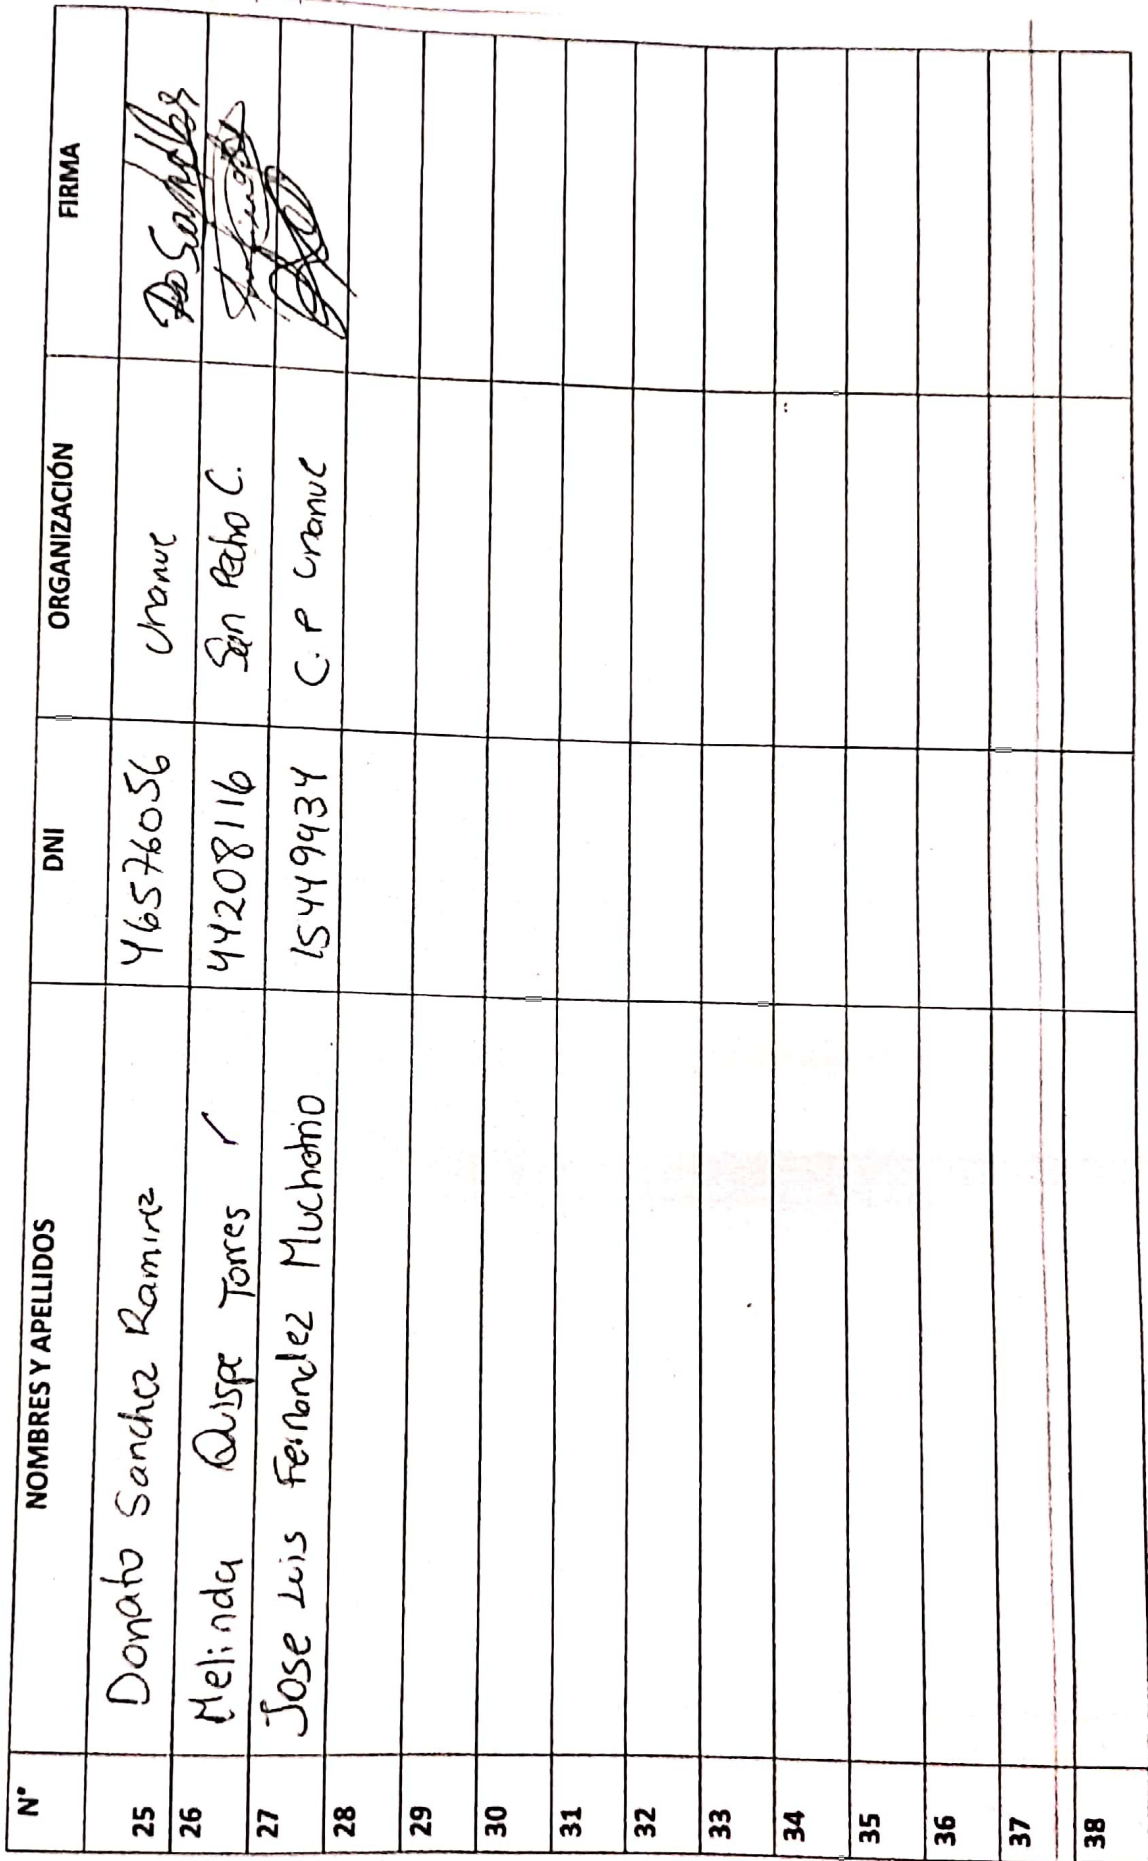 N° NOMBRES Y APELLIDOS DNI ORGANIZACIÓN FIRMA
25 Donato Sanchez Ramirez 46576056 Unanue
26 Melinda Quispe Torres 44208116 San Pedro C.
27 Jose Luis Fernandez Muchotrio 15449934 C.P Unanue
28
29
30
31
32
33
34
35
36
37
38